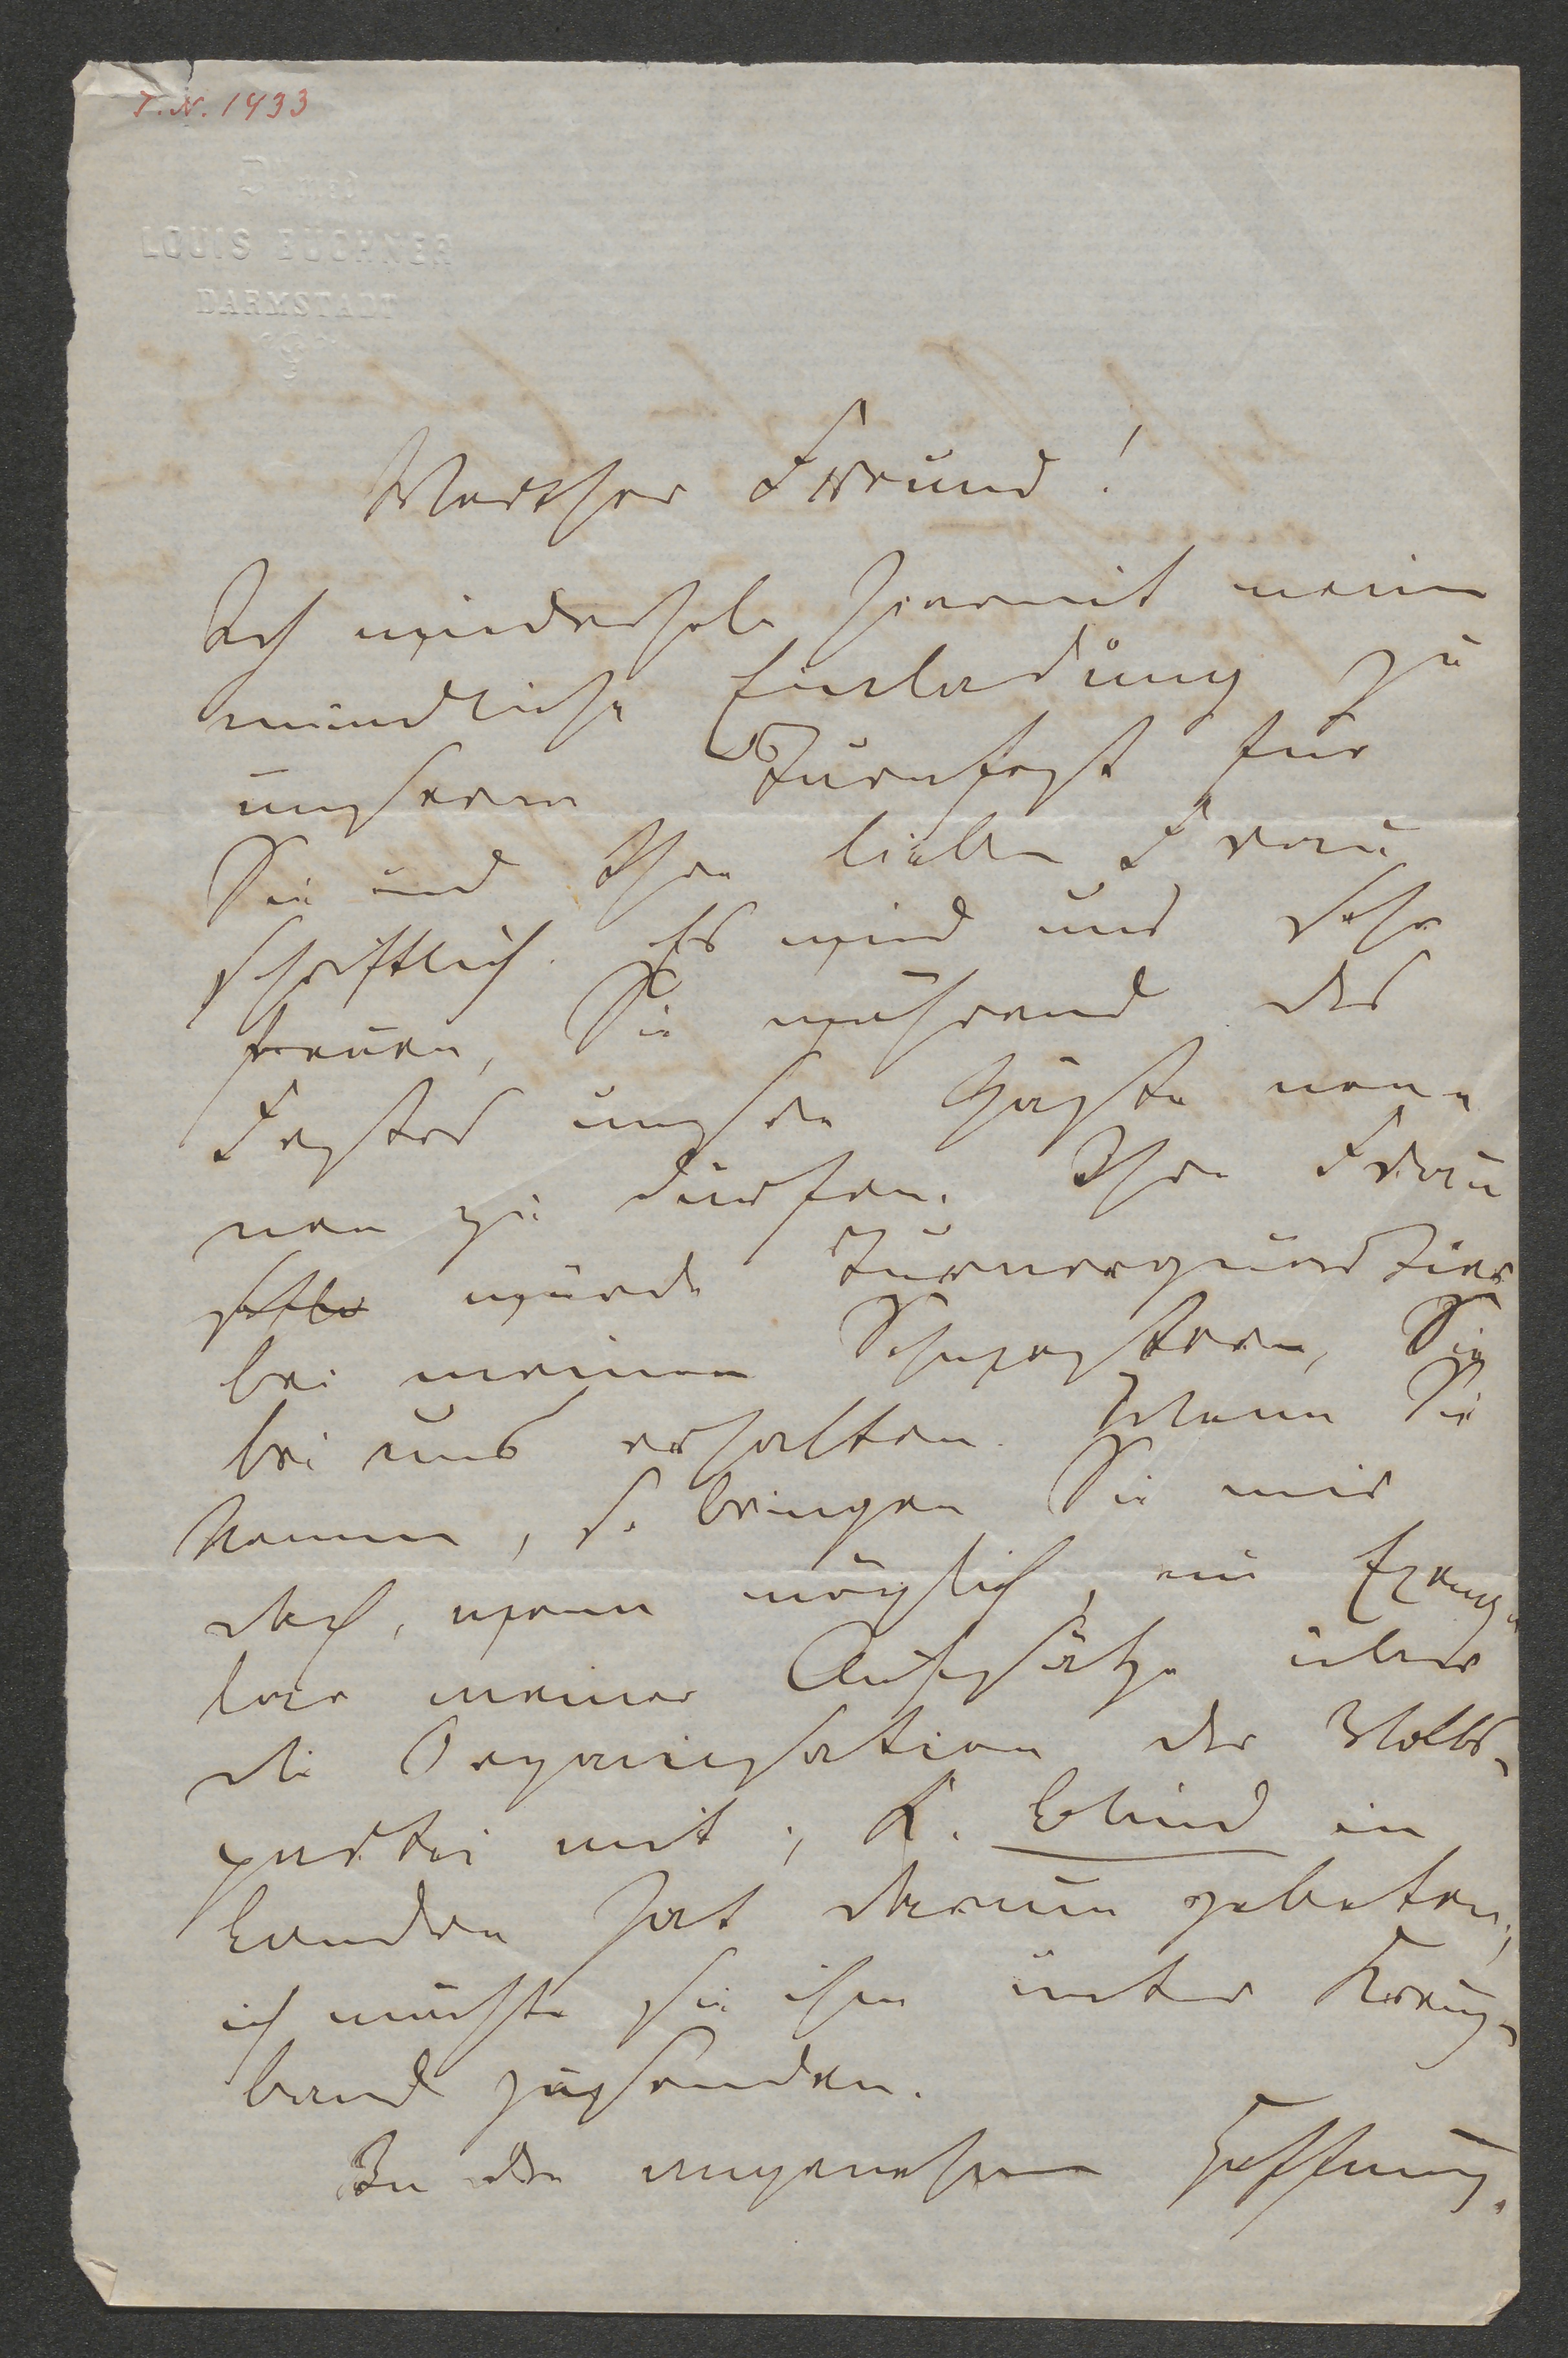 T.N. 1433
Dr med
LOUIS BÜCHNER
DARMSTADT
Werther Freund!
Ich wiederhole hiermit meine
mündliche Einladung zu
unserem Turnfest für
Sie und Ihre liebe Frau
schriftlich. Es wird uns sehr
freuen, Sie während des
Festes unsere Gäste nen-
nen zu dürfen. Ihre Frau
würde Turnerquartier
bei meinen Schwestern, Sie
bei uns erhalten. Wenn Sie
kommen, so bringen Sie mir
doch, wenn möglich, ein Exemp-
lar meiner Aufsätze über
die Organisation der Volks-
partei mit; K. Blind in
London hat darum gebeten,
ich möchte sie ihm unter Kreuz-
band zusenden.
In der angenehmen Hoffnung,